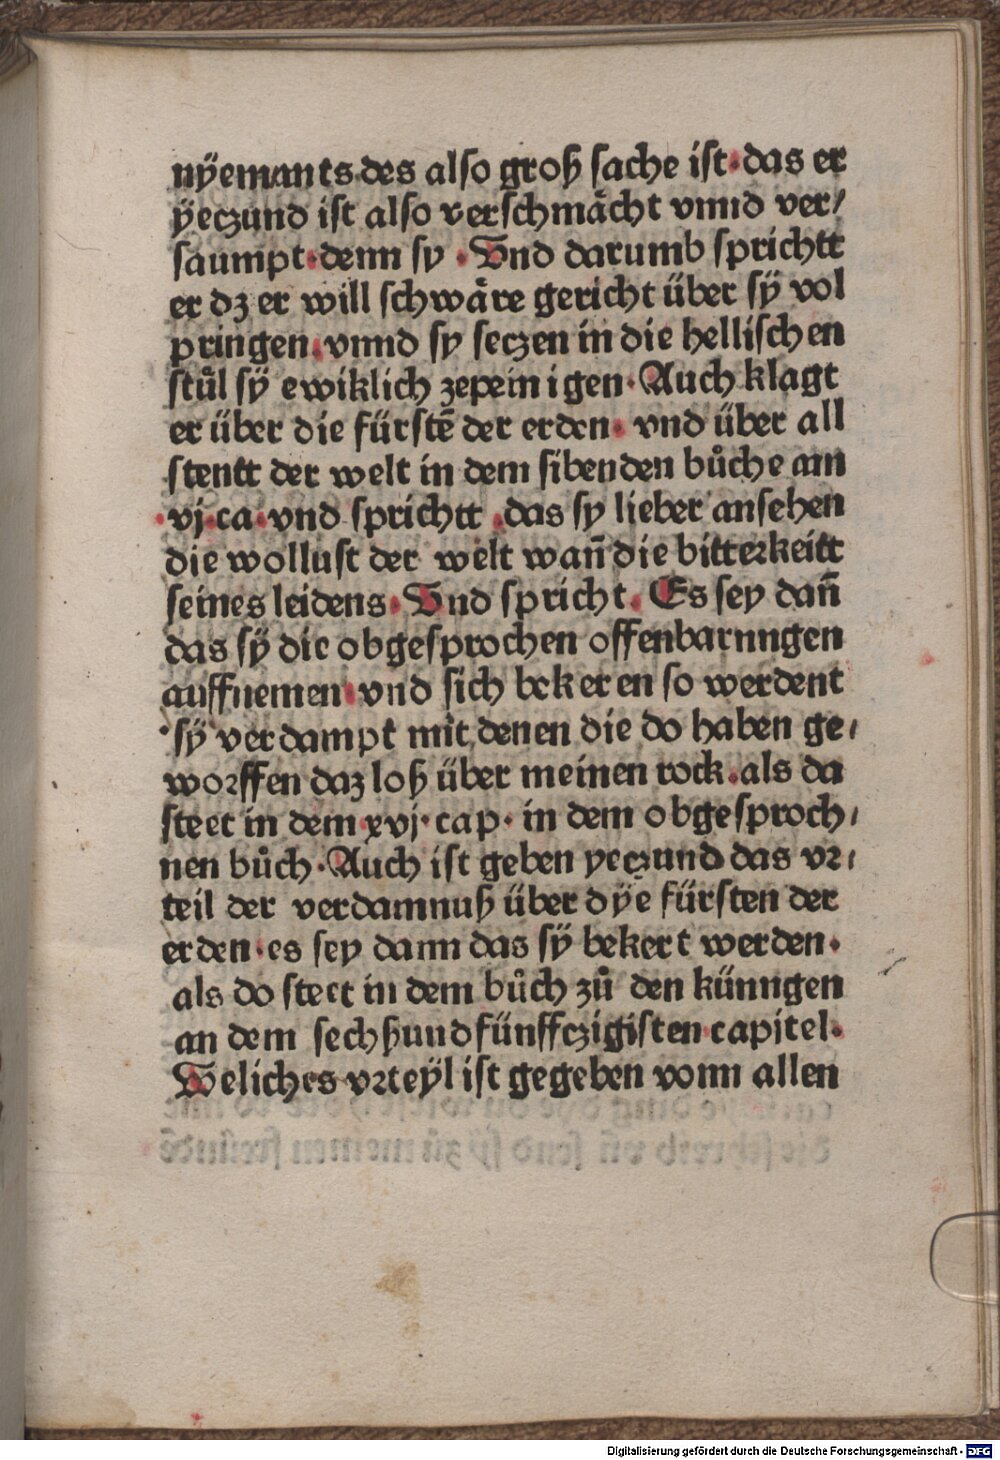 nÿemants des also groß sache ist·das er
ÿeczund ist also verschmächt vnnd ver/
saumpt·denn sy · Vnd darumb sprichtt
er dz er will schwäre gericht über sÿ vol
pringen·vnnd sy seczen in die hellischen
stůl sÿ ewiklich zepeinigen·Auch klagt
er über die fürstē der erden· vnd über all
stentt der welt in dem sibenden bůche am
·vj·ca·vnd sprichtt ·das sy lieber ansehen
die wollust der welt wañ die bitterkeitt
seines leidens·Vnd spricht. Es sey dañ
das sÿ die obgesprochen offenbarnngen
auffnemen·vnd sich bekeren so werdent
sÿ verdampt mit denen die do haben ge/
worffen daz loß über meinen rock·als da
steet in dem·xvj·cap· in dem obgesproch/
nen bůch·Auch ist geben yeczund das vr/
teil der verdamnuß über dÿe fürsten der
erden·es sey dann das sÿ bekert werden·
als do steet in dem bůch zů den künngen
an dem sechßundfünffczigisten capitel·
Weliches vrteÿl ist gegeben vonn allen
Digitalisierung gefördert durch die Deutsche Forschungsgemeinschaft - DFG